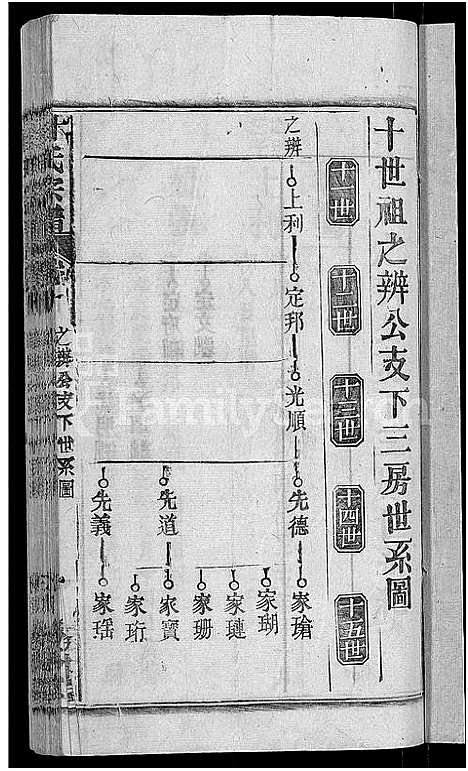 十世祖之辨公支下三房世系圖
十一世
十二世
十三世
十四世
十五世
之辨
上利
定邦
光順
先德
家瑲
家瑚
家璉
家珊
先道
家寶
家珩
先義
家瑶
氏宗譜
之辨公支下世系圖
FamilySearch